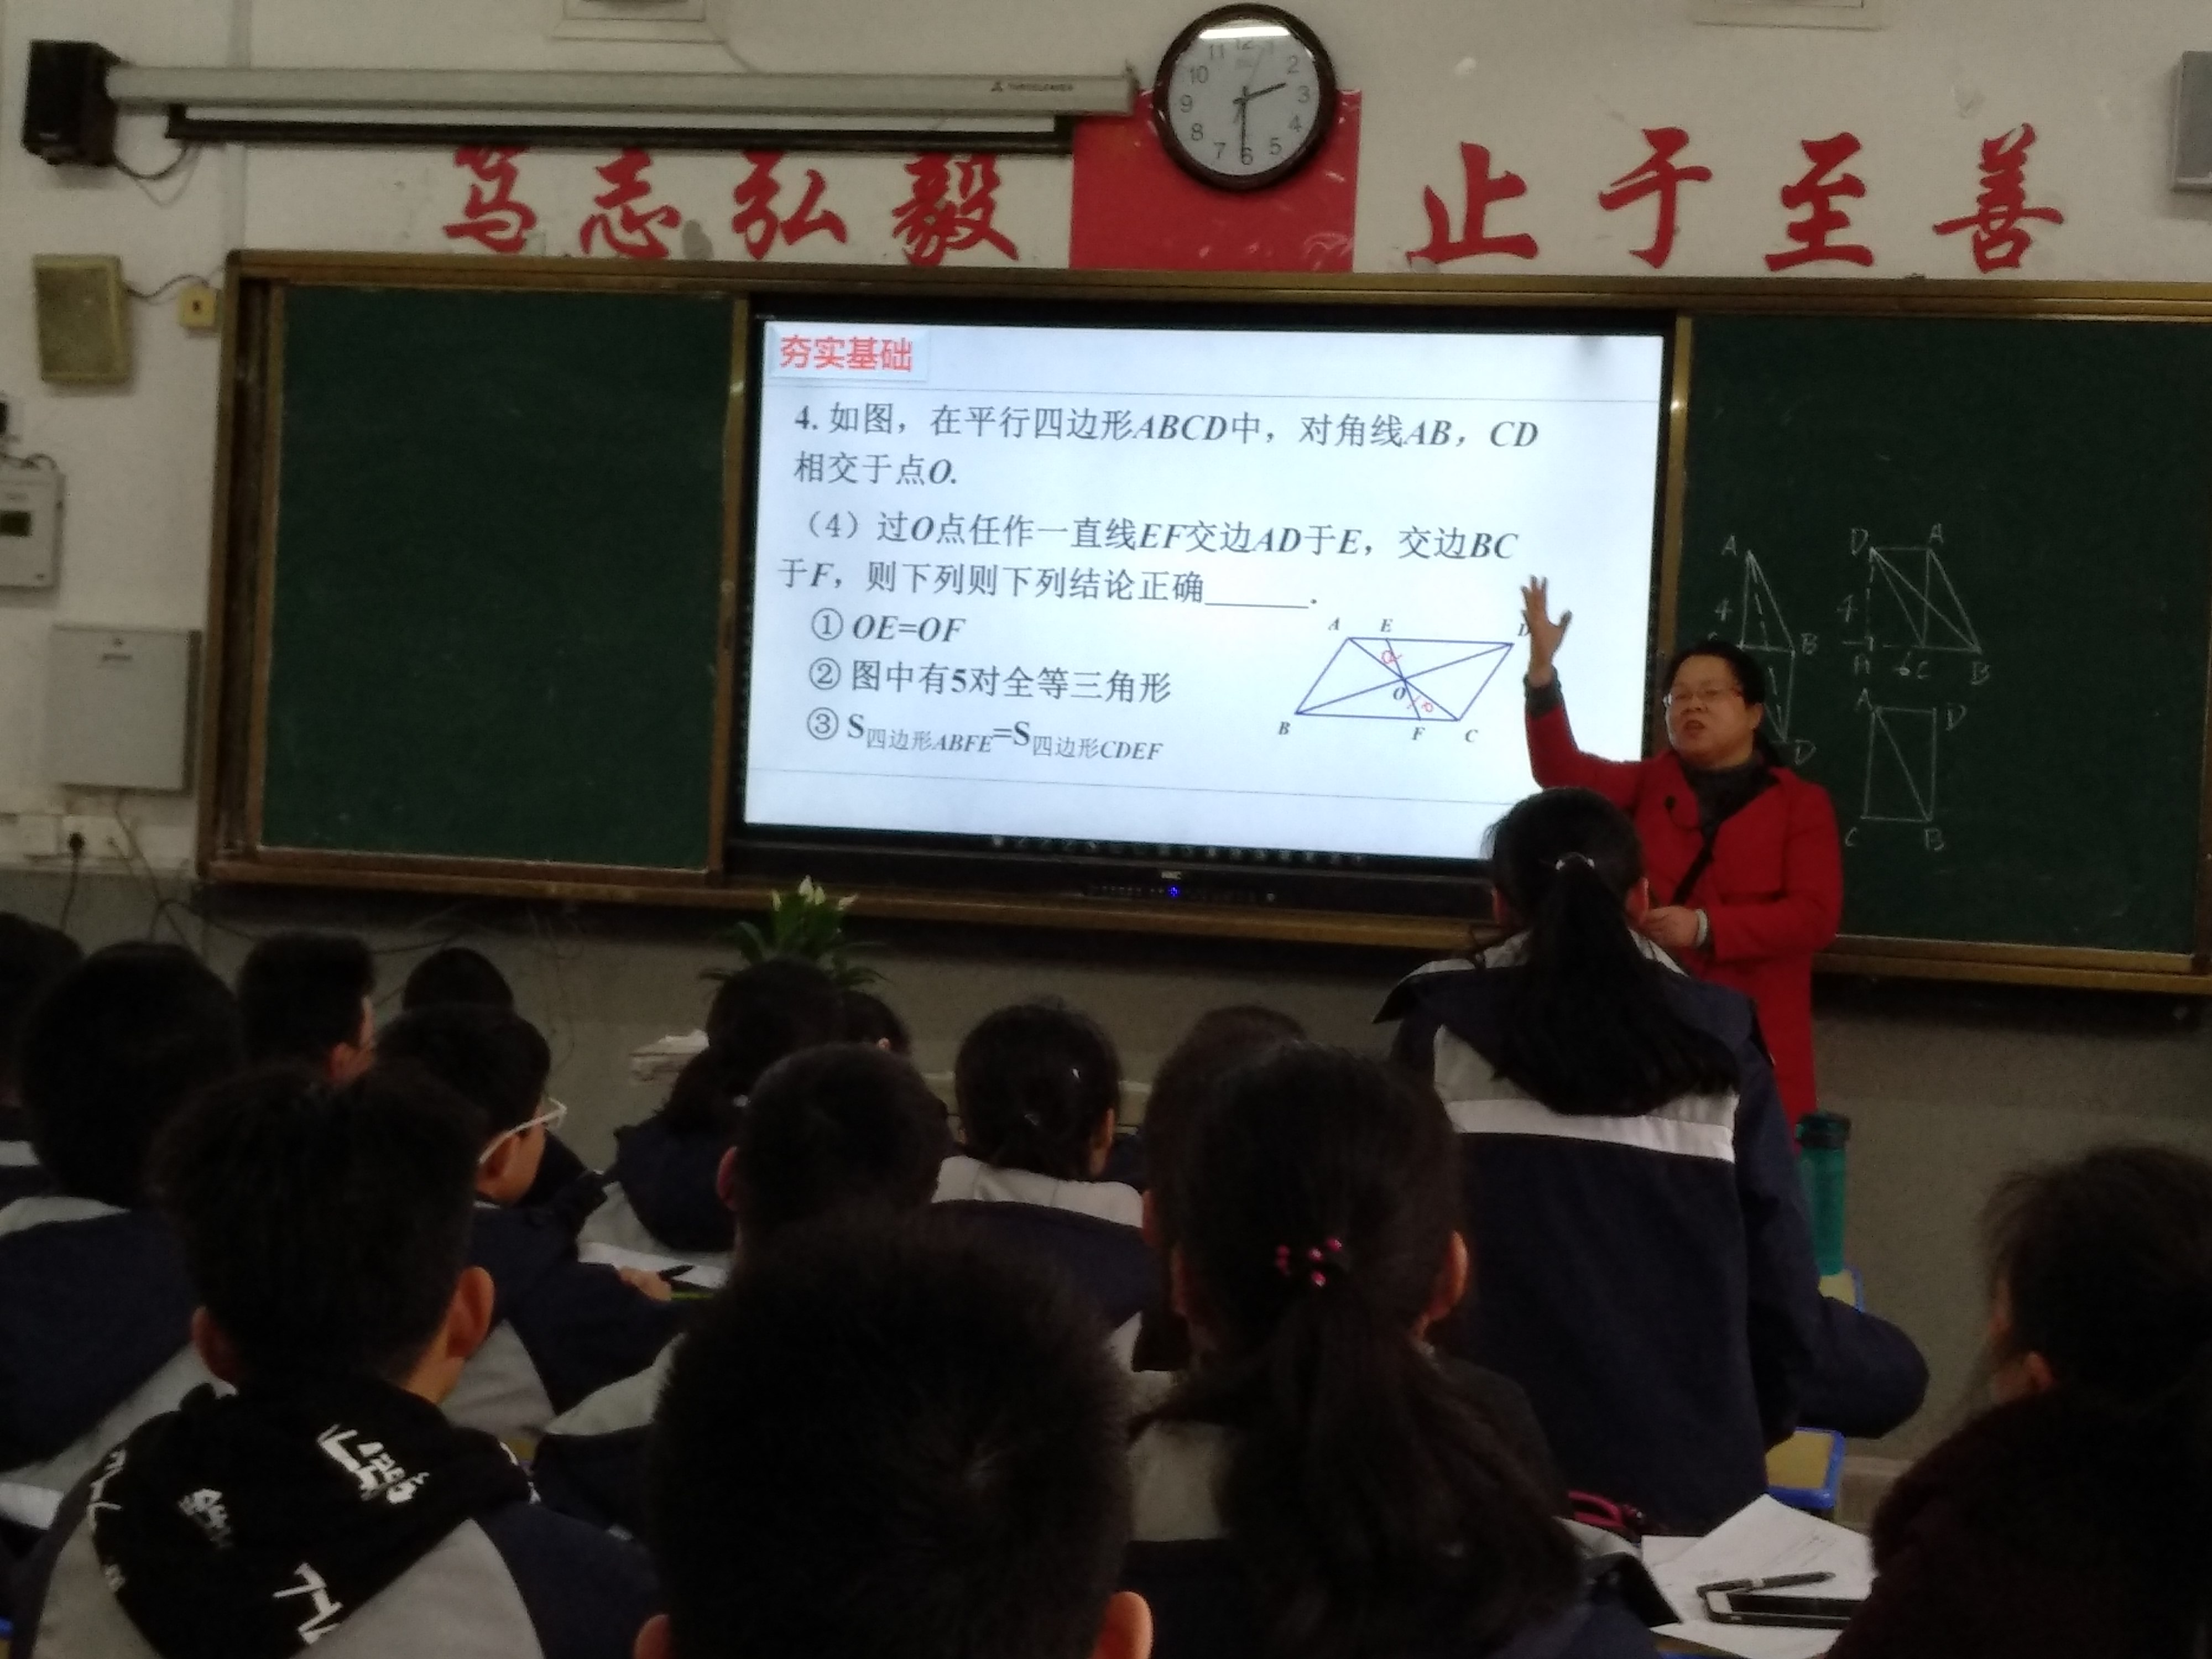 笃志弘毅 止于至善
11 12 1
10 2
9 3
8 4
7 6 5
夯实基础
4. 如图，在平行四边形ABCD中，对角线AB，CD
相交于点O.
（4）过O点任作一直线EF交边AD于E，交边BC
于F，则下列则下列结论正确______.
① OE=OF
② 图中有5对全等三角形
③ S四边形ABFE=S四边形CDEF
A E D
O
B F C
A D A
4 4
B H 6 C B
D
A D
C B